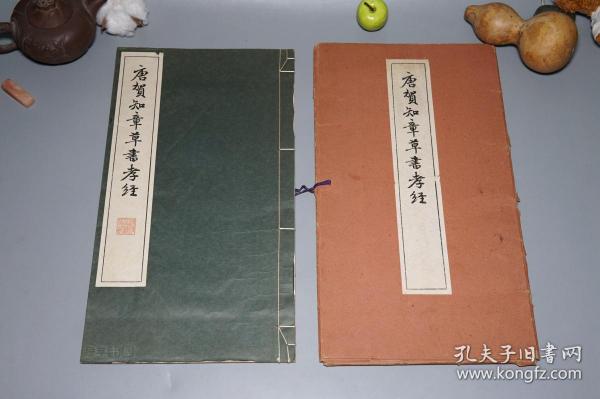 唐賀知章草書孝经
唐賀知章草書孝经
孔夫子旧書网
www.kongfz.com